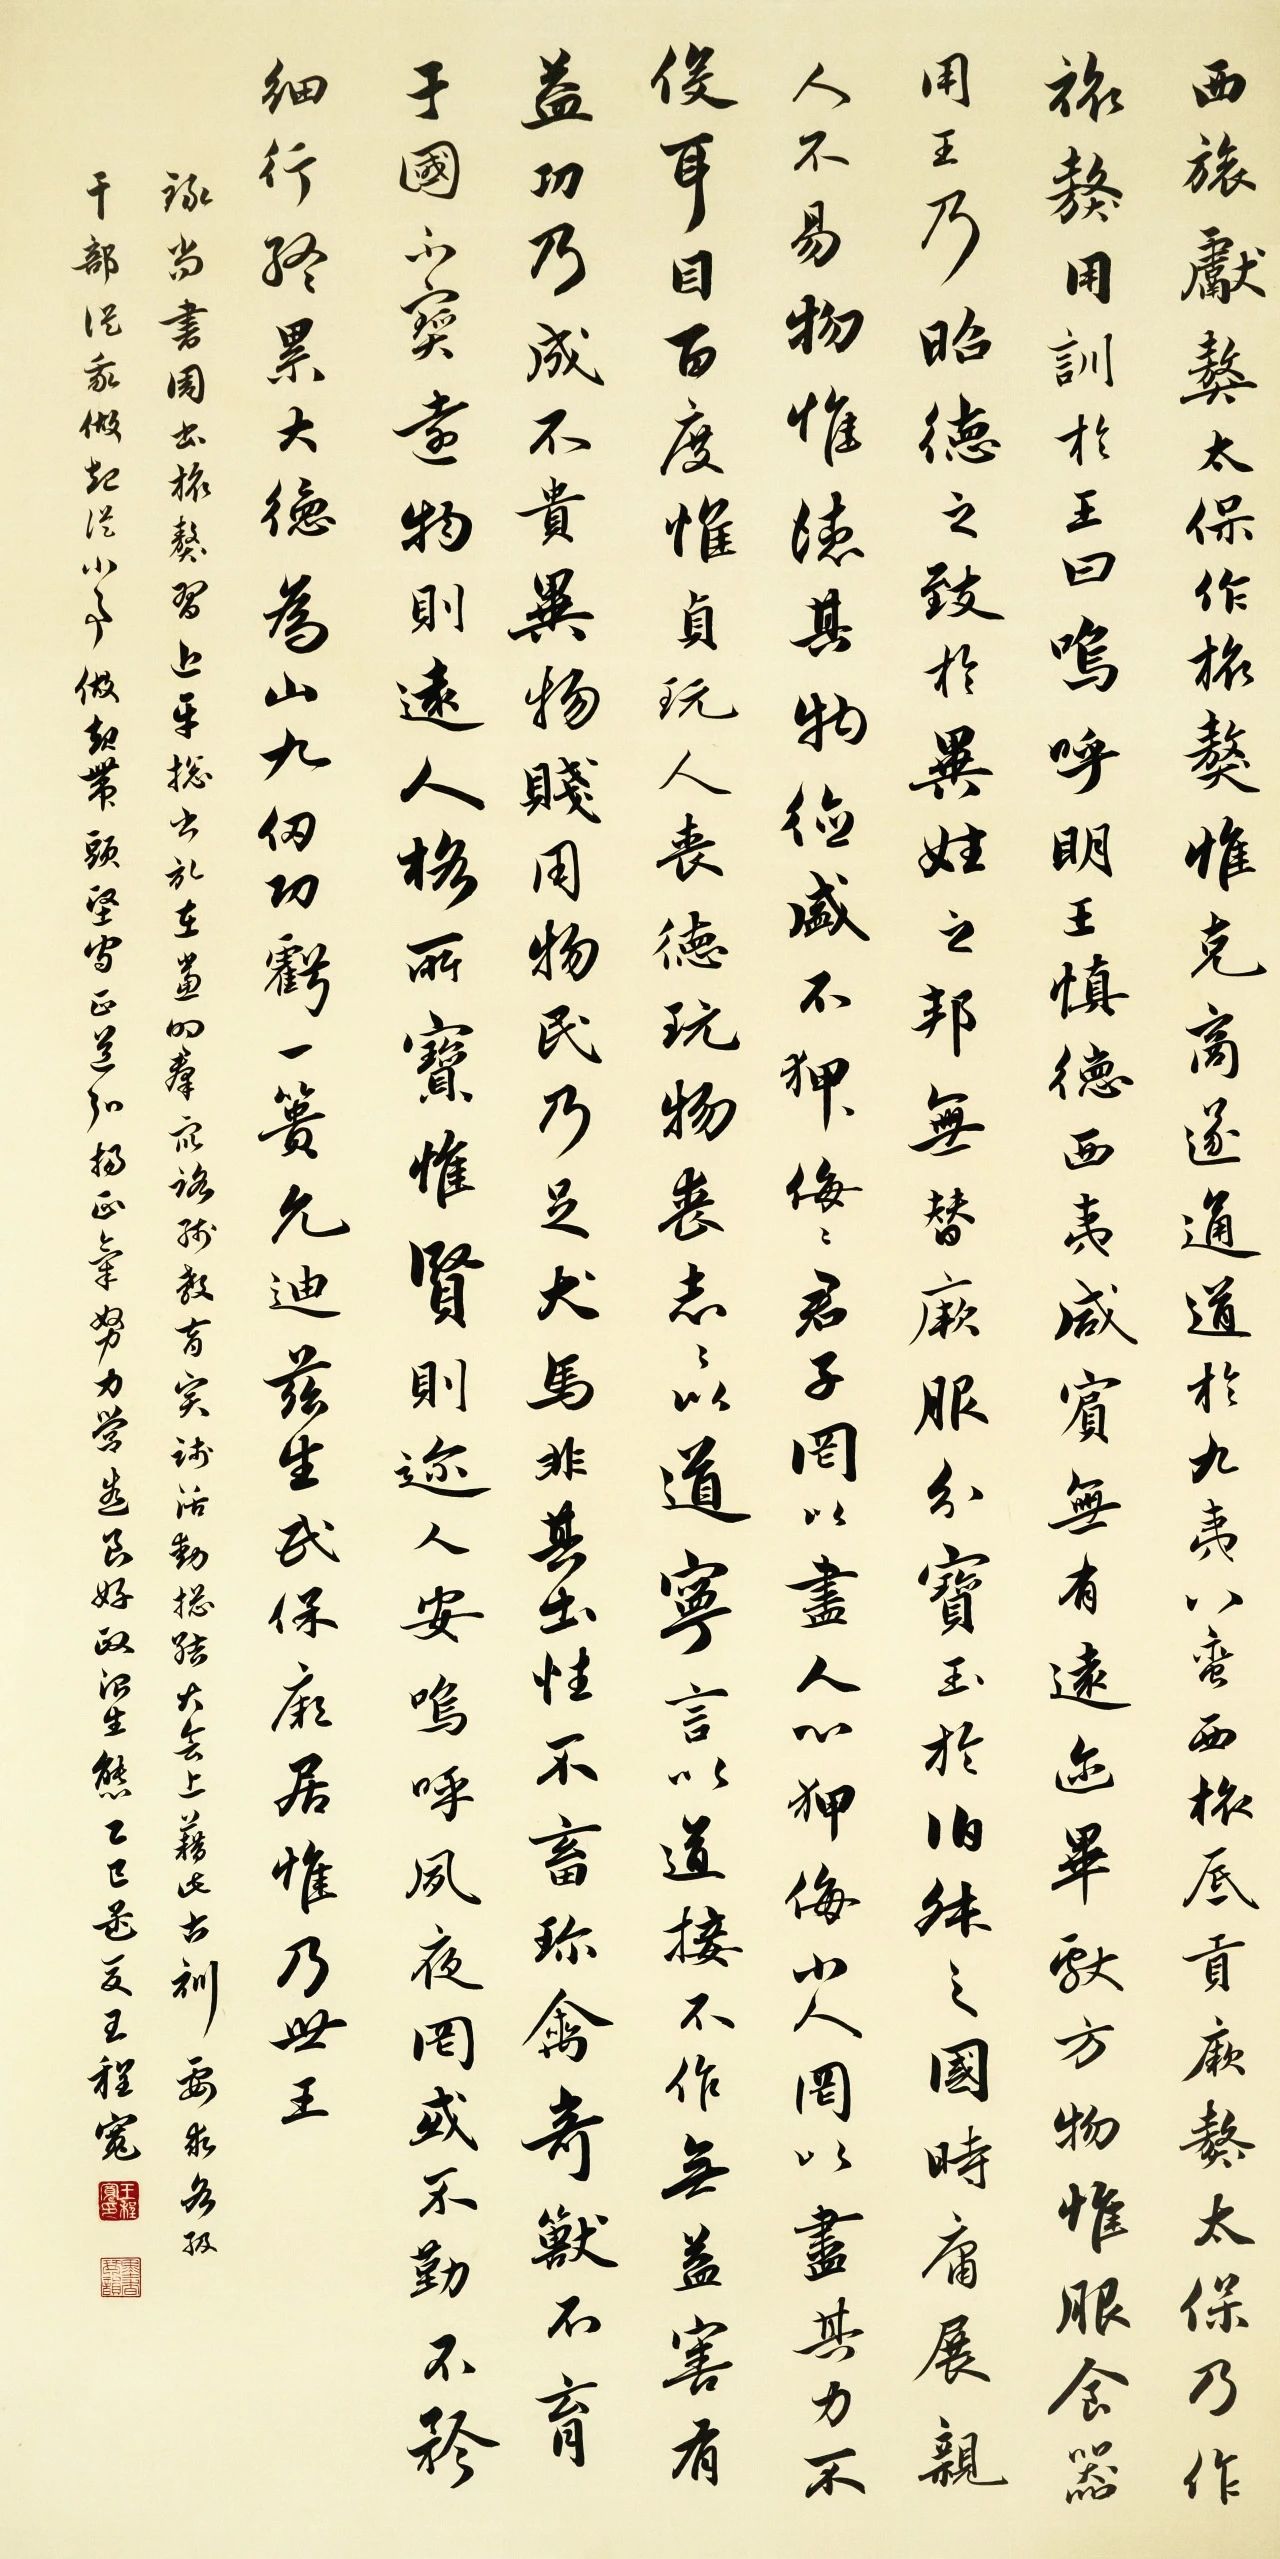 西旅獻獒太保作旅獒惟克商遂通道於九夷八蛮西旅底貢厥獒太保乃作
旅獒用訓於王曰嗚呼明王慎德西夷咸賓無有遠迩畢獻方物惟服食器
用王乃昭德之致於異姓之邦無替厥服分寶玉於伯叔之國時庸展親
人不易物惟德其物德盛不狎侮〻君子罔以盡人心狎侮小人罔以盡其力不
役耳目百度惟貞玩人丧德玩物丧志〻以道寧言以道接不作無益害有
益功乃成不貴異物賤用物民乃足犬馬非其土性不畜珍禽奇獸不育
于國不寳遠物則遠人格所寶惟賢則迩人安嗚呼夙夜罔或不勤不矜
细行終累大德為山九仞功虧一簣允迪兹生民保厥居惟乃世王
録尚書周書旅獒習近平總書記在党的羣众路线教育实践活動總结大会上藉此古训要求各级
干部從我做起從小事做起带頭坚守正道弘揚正氣努力营造良好政治生態乙巳孟夏王程寬
王程寬印